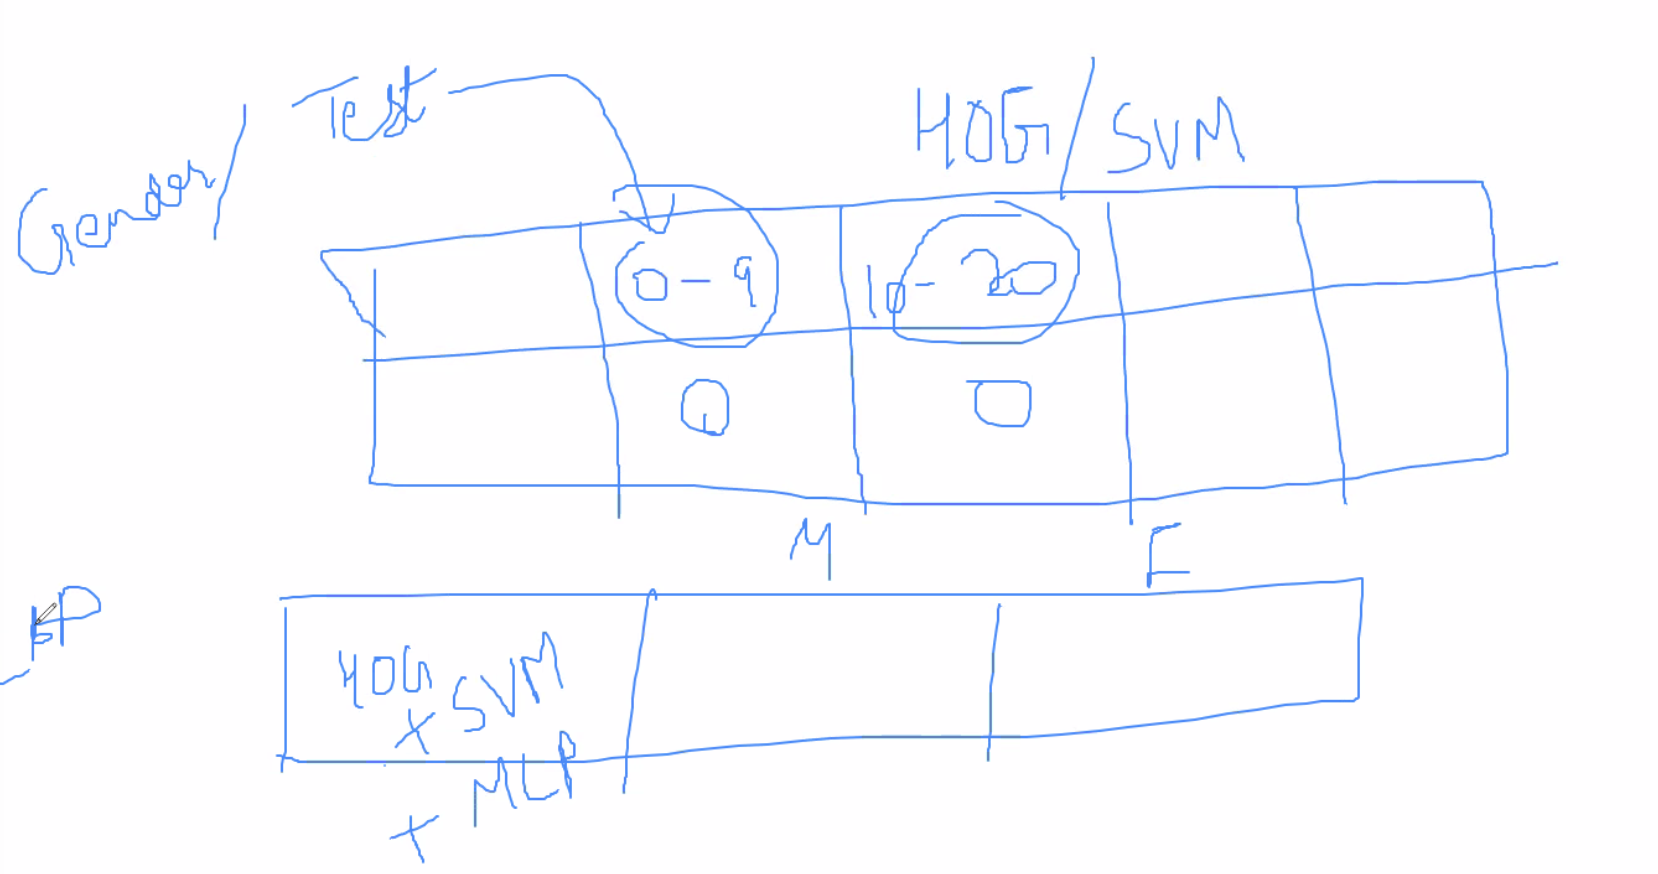 Gender/ Test
HOG/SVM
0-9
10-20
M
F
HOG
+ SVM
+ MLP